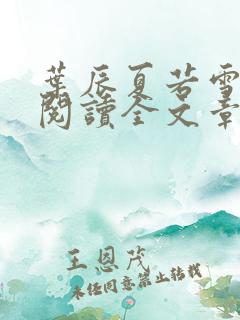 葉辰夏若雪
閱讀全文章
王恩茂
未经同意禁止转载